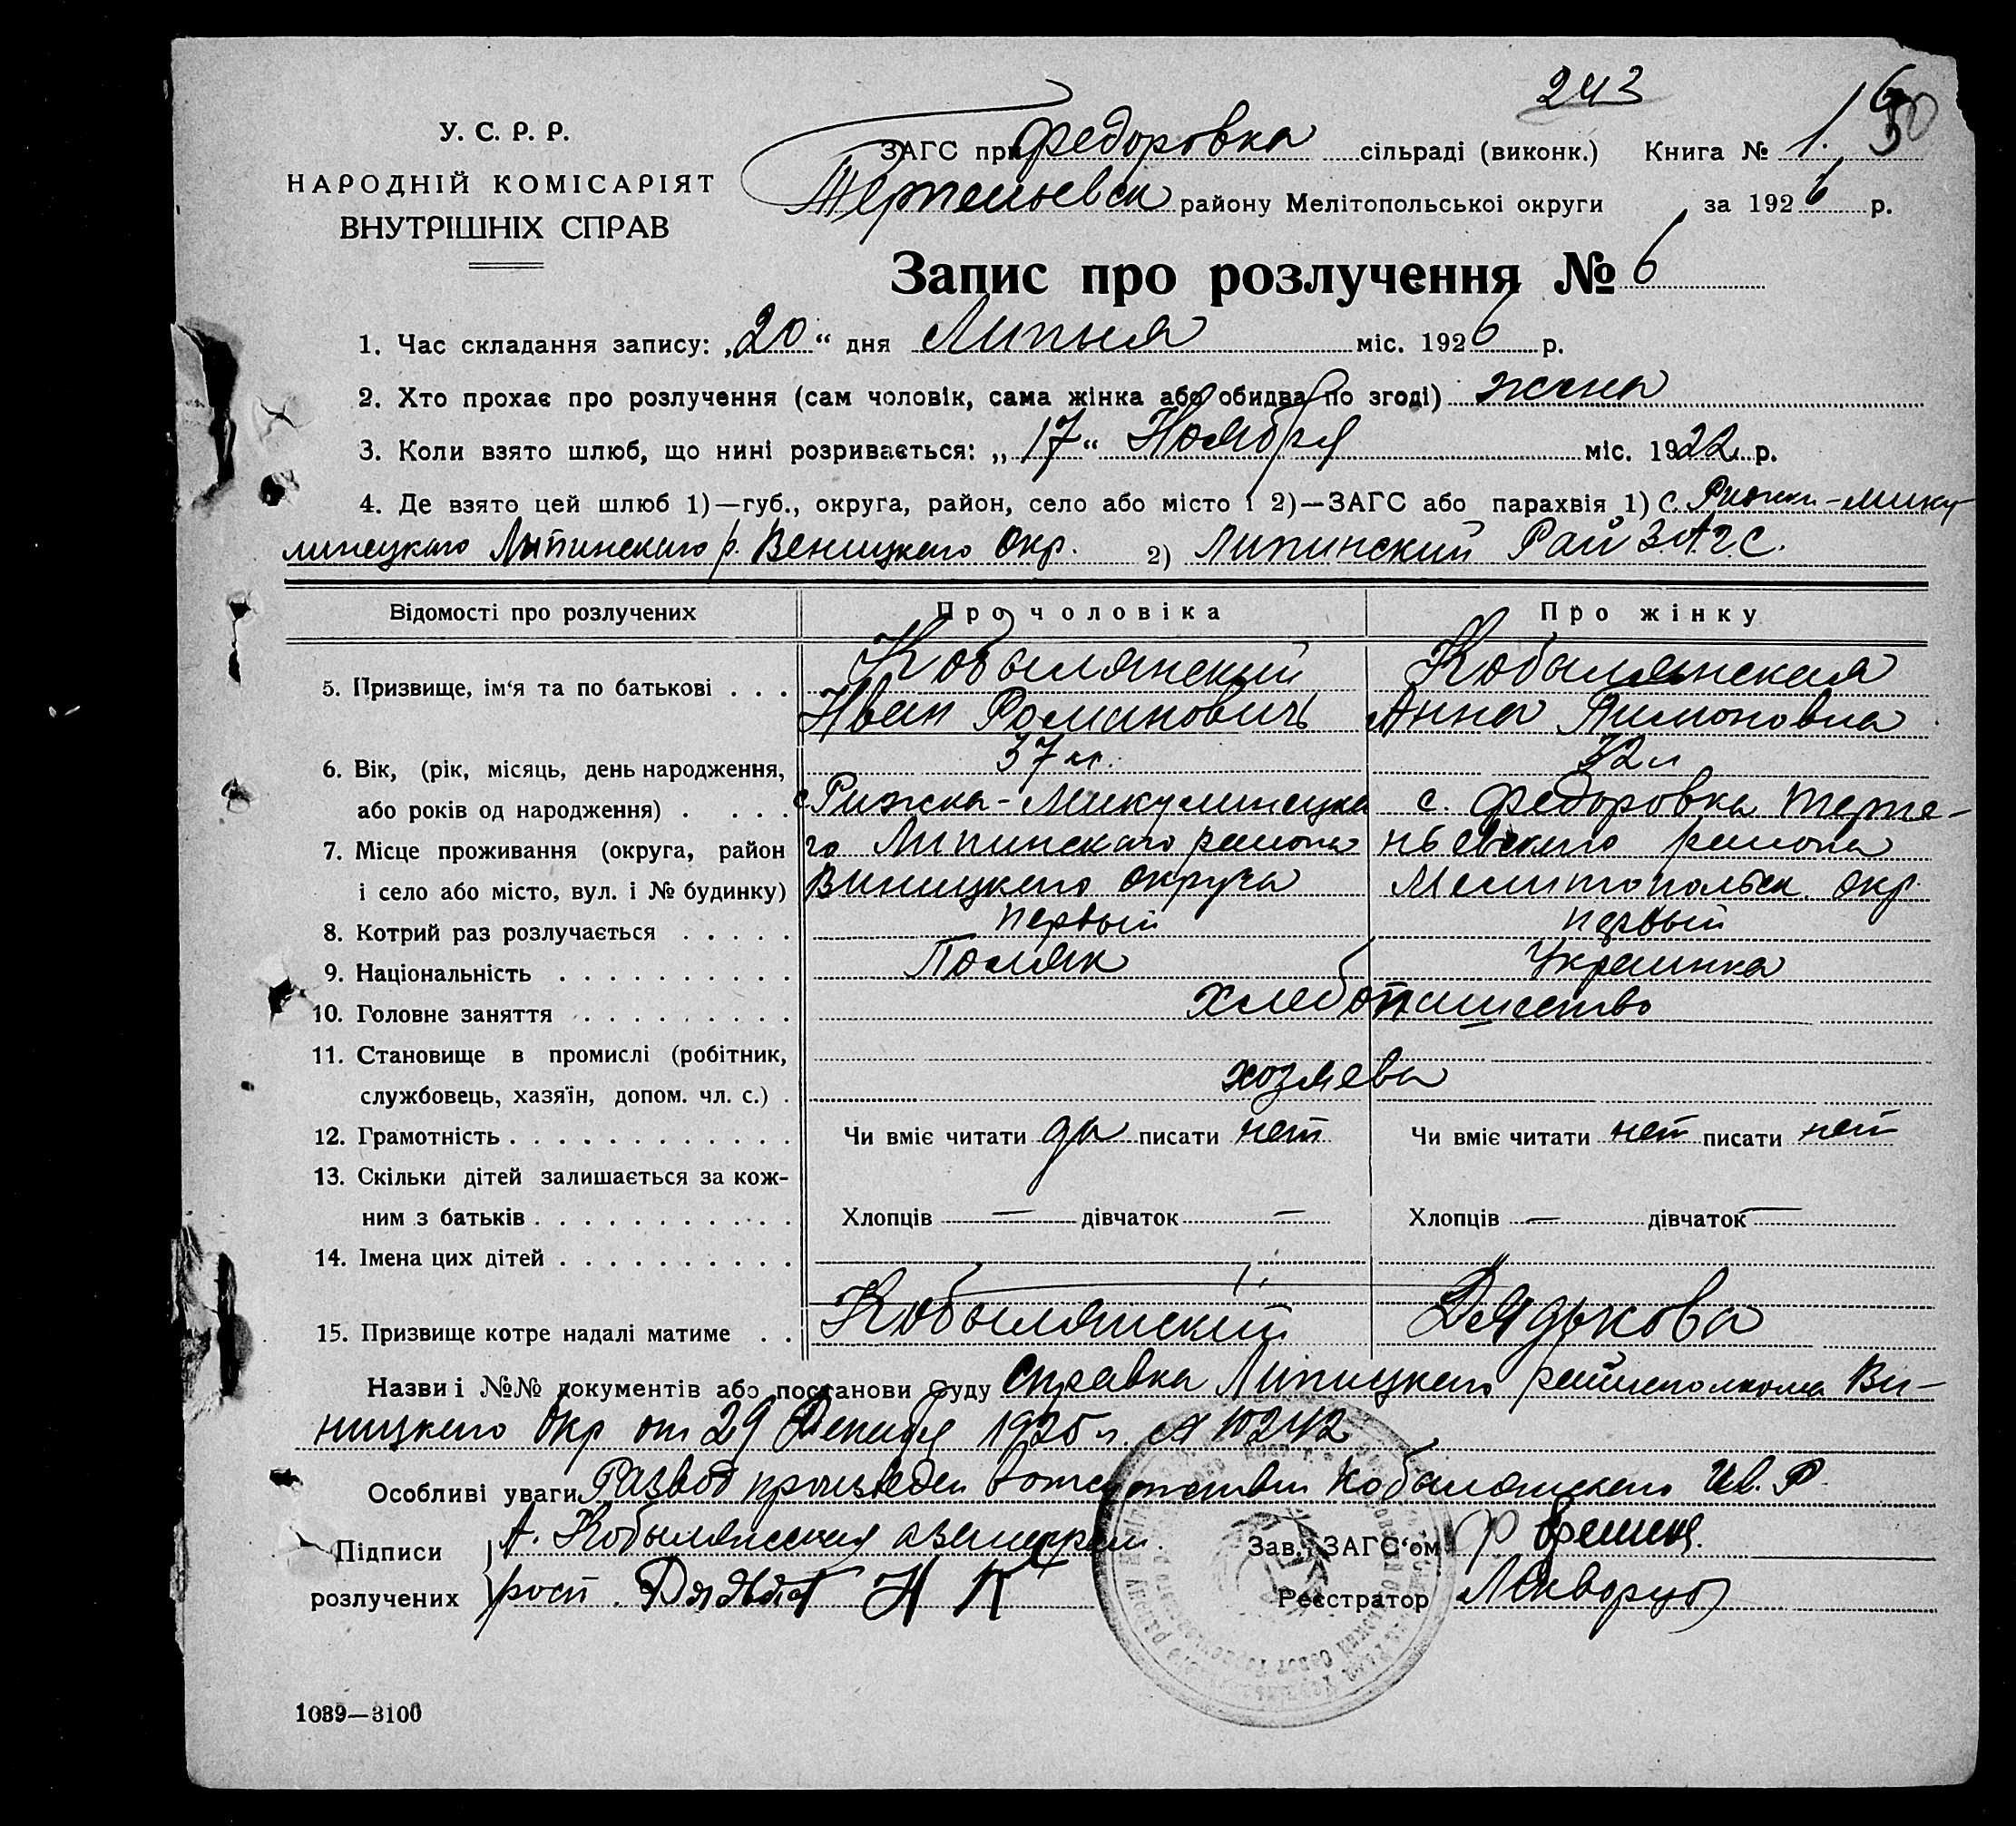 243
У. С. Р. Р.
НАРОДНІЙ КОМІСАРІЯТ
ВНУТРІШНІХ СПРАВ
ЗАГС при Федоровка сільраді (виконк.) Книга № 1.
Терпеньевск району Мелітопольської округи за 1926 р.
Запис про розлучення № 6
1. Час складання запису: „20“ дня Липня міс. 1926 р.
2. Хто прохає про розлучення (сам чоловік, сама жінка або обидва по згоді) жена
3. Коли взято шлюб, що нині розривається: „17“ Ноября міс. 1922 р.
4. Де взято цей шлюб 1)—губ., округа, район, село або місто і 2)—ЗАГС або парахвія 1) с. Рижки-мику
линецкаго Липинскаго р. Веницкаго Окр. 2) Липинский Рай ЗАГС.
Відомості про розлучених Про чоловіка Про жінку
5. Призвище, ім‘я та по батькові . . . Кобылянский Иван Романович Кобылянская Анна Пимоновна
6. Вік, (рік, місяць, день народження, або років од народження) . . . . 37 л. 32 л
7. Місце проживання (округа, район і село або місто, вул. і № будинку) с Рижка-Микулинецка
го Липинскаго района
Виницкаго округа
с. Федоровка Терпе-
ньевскаго района
Мелитопольск окр.
8. Котрий раз розлучається . . . . . первый первый
9. Національність . . . . . . . . . . Поляк Украинка
10. Головне заняття . . . . . . . . . хлебопашество
11. Становище в промислі (робітник, службовець, хазяїн, допом. чл. с.) . хозяева
12. Грамотність . . . . . . . . . . . . . Чи вміє читати да писати нет Чи вміє читати нет писати нет
13. Скільки дітей залишається за кож-
ним з батьків . . . . . . . . . . . . Хлопців — дівчаток — Хлопців — дівчаток —
14. Імена цих дітей . . . . . . . . . .
15. Призвище котре надалі матиме . . Кобылянский Дядькова
Назви і №№ документів або постанови суду справка Липицкаго райисполкома Ви-
ницкаго Окр от 29 Декабря 1925 г. № 10242
Особливі уваги Развод произведен в отсутствии Кобылянскаго Ив. Р
Підписи розлучених А. Кобылянская
Зав. ЗАГС‘ом
Реєстратор
1039—3100